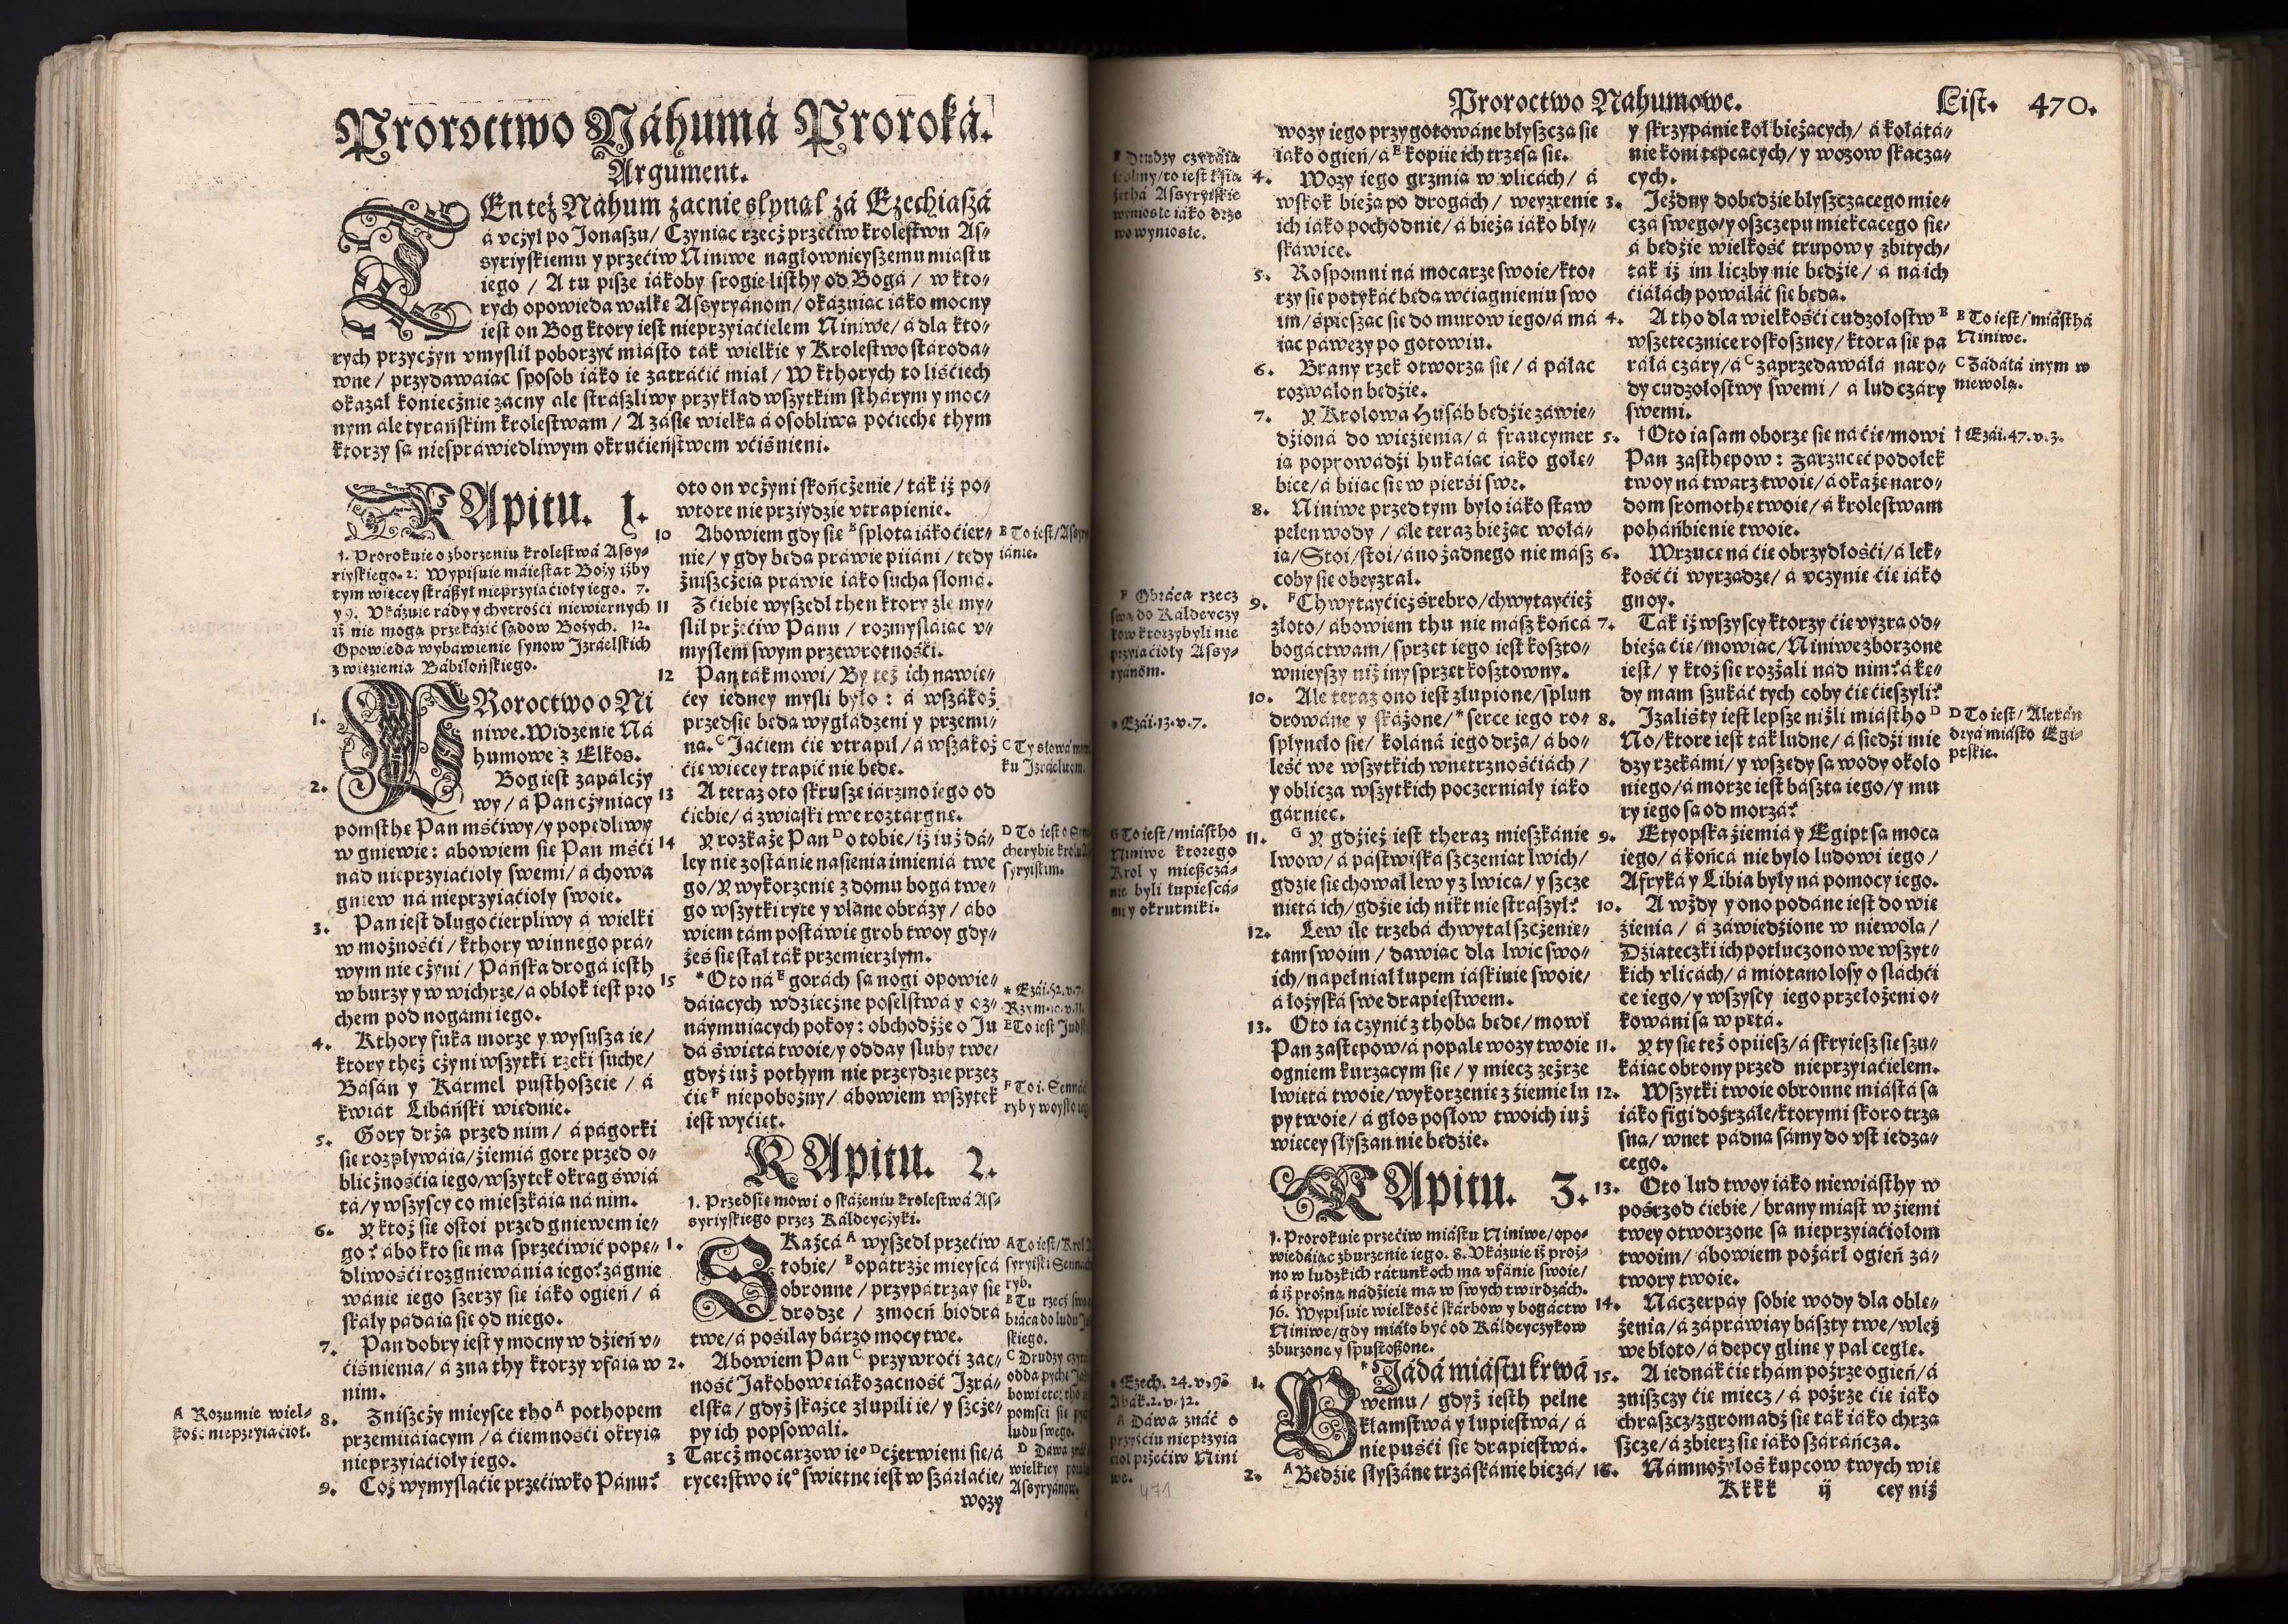 Proroctwo Náhumá Proroká.
Argument.
TEn też Náhum zacnie słynął zá Ezechiaszá
á vcżył po Jonaszu/ Czyniąc rzecż przećiw krolestwu As⸗
syriyskiemu y przećiw Niniwe nagłownieyszemu miástu
iego / A tu pisze iákoby srogie listhy od Bogá / w kto⸗
rych opowieda walkę Assyryánom/ okázuiąc iáko mocny
iest on Bog ktory iest nieprzyiaćielem Niniwe/ á dla kto⸗
rych przycżyn vmyslił poborzyć miásto ták wielkie y Krolestwo stároda⸗
wne / przydawaiąc sposob iáko ie zátráćić miał / W kthorych to liśćiech
okazał koniecżnie zacny ále strászliwy przykład wszytkim sthárym y moc⸗
nym ále tyráńskim krolestwam / A zásię wielką á osobliwą poćiechę thym
ktorzy są niespráwiedliwym okrućieństwem vćiśnieni.
KApitu. 1.
1. Prorokuie o zborzeniu krolestwá Assy⸗
riyskiego. 2. Wypisuie máiestat Boży iżby
tym więcey strászył nieprzyiaćioły iego. 7.
y 9. Vkázuie rády y chytrośći niewiernych
iż nie mogą przekázić sądow Bożych. 12.
Opowieda wybáwienie synow Izráelskich
z więzienia Bábilońskiego.
1. PRoroctwo o Ni
niwe. Widzenie Ná
humowe z Elkos.
2. Bog iest zapálcży
wy / á Pan cżyniący
pomsthę Pan mśćiwy/ y popędliwy
w gniewie: ábowiem się Pan mśći
nád nieprzyiaćioły swemi/ á chowa
gniew ná nieprzyiaćioły swoie.
3. Pan iest długo ćierpliwy á wielki
w możnośći / kthory winnego prá⸗
wym nie cżyni / Páńska drogá iesth
w burzy y w wichrze/ á obłok iest pro
chem pod nogámi iego.
4. Kthory fuka morze y wysusza ie/
ktory theż cżyni wszytki rzeki suche/
Básán y Kármel pusthoszeie / á
kwiát Libáński więdnie.
5. Gory drżą przed nim/ á págorki
się rozpływáią/ źiemiá gore przed o⸗
blicżnośćią iego/ wszytek okrąg świá
tá/ y wszyscy co mieszkáią ná nim.
6. Y ktoż się ostoi przed gniewem ie⸗
go? ábo kto się ma sprzećiwić popę⸗
dliwośći rozgniewánia iego? zágnie
wánie iego szerzy się iáko ogień / á
skáły pádáią się od niego.
7. Pan dobry iest y mocny w dźień v⸗
ćiśnienia/ á zna thy ktorzy vfáią w
nim.
8. Zniszcży mieysce tho A pothopem
przemiiáiącym / á ćiemnośći okryią
nieprzyiaćioły iego.
9. Coż wymyslaćie przećiwko Pánu?
A Rozumie wiel⸗
kość nieprzyiaćioł.
oto on vcżyni skońcżenie/ ták iż po⸗
wtore nie przyidzie vtrapienie.
10 Abowiem gdy się B splotą iáko ćier⸗
nie/ y gdy będą práwie piiáni / tedy
zniszcżeią práwie iáko sucha słomá.
11 Z ćiebie wyszedł then ktory źle my⸗
slił przećiw Pánu / rozmyslaiąc v⸗
mysłem swym przewrotnośći.
12 Pan ták mowi/ By też ich nawię⸗
cey iedney mysli było : á wszákoż
przedsię będą wygłádzeni y przemi⸗
ną. C Jaćiem ćie vtrapił/ á wszákoż
ćie więcey trapić nie będę.
13 A teraz oto skruszę iárzmo iego od
ćiebie/ á zwiąski twe roztárgnę.
14 Y rozkaże Pan D o tobie/ iż iuż dá⸗
ley nie zostánie nasienia imienia twe
go/ Y wykorzenię z domu bogá twe⸗
go wszytki ryte y vlane obrázy / ábo
wiem tám postáwię grob twoy gdy⸗
żeś się stał ták przemierzłym.
15 * Oto ná E gorách są nogi opowie⸗
dáiących wdzięcżne poselstwá y oz⸗
náymuiących pokoy: obchodźże o Ju
dá świętá twoie/ y odday sluby twe/
gdyż iuż pothym nie przeydzie przez
ćię F niepobożny/ ábowiem wszytek
iest wyćięt.
B To iest/ Assyry
iánie.
C Ty słowá
ku Izráelitom.
D To iest o Senná
cherybie krolu
syryiskim.
* Ezái. 52. v. 7.
E To iest
F To i. Sennách
ryb y woysko
KApitu. 2.
1. Przedsię mowi o skáżeniu krolestwá As⸗
syriyskiego przez Káldeycżyki.
1. SKaźcá A wyszedł przećiw
tobie/ B opátrzże mieyscá
obronne / przypátrzay się
drodze / zmocń biodrá
twe/ á pośilay bárzo mocy twe.
2. Abowiem Pan C przywroći zac⸗
ność Jákobowę iáko zacność Izrá⸗
elską / gdyż skaźce złupili ie/ y szcże⸗
py ich popsowáli.
3 Tarcż mocarzow ieº D cżerwieni się/ á
rycerstwo ieº świetne iest w szárłáćie/
wozy
A To iest/ Krol
syryiski Sennách
ryb.
B Tu rzecż swoię
obráca do ludu
skiego.
C Drudzy czyt
odda pychę
pomśći się
ludu swego.
D Dawa znáć
wielkiey
Assyryánow.
Proroctwo Nahumowe. List. 470.
wozy iego przygotowáne błyszcżą się
iáko ogień/ á E kopiie ich trzęsą się.
4. Wozy iego grzmią w vlicách/ á
wskok bieżą po drogách / weyzrenie
ich iáko pochodnie/ á bieżą iáko bły⸗
skáwice.
5. Rospomni ná mocarze swoie/ kto⸗
rzy się potykáć będą w ćiągnieniu swo
im/ spiesząc się do murow iego/ á má
iąc páwęzy po gotowiu.
6. Brany rzek otworzą się / á páłac
rozwálon będzie.
7. Y Krolowa Husáb będzie záwie⸗
dźioná do więzienia/ á fráucymer
ią poprowádźi hukáiąc iáko gołę⸗
bice/ á biiąc się w pierśi swe.
8. Niniwe przed tym było iáko staw
pełen wody / ále teraz bieżąc wołá⸗
ią/ Stoi/ stoi/ áno żadnego nie mász
coby się obeyzrał.
9. F Chwytayćież śrebro/ chwytayćież
złoto/ ábowiem thu nie mász końcá
bogáctwam/ sprzęt iego iest koszto⸗
wnieyszy niż iny sprzęt kosztowny.
10. Ale teraz ono iest złupione/ splun
drowáne y skáżone/ * serce iego ro⸗
spłynęło się/ koláná iego drżą/ á bo⸗
leść we wszytkich wnętrznośćiách /
y obliczá wszytkich poczerniáły iáko
gárniec.
11. G Y gdźież iest theraz mieszkánie
lwow/ á pástwiská szczeniąt lwich/
gdzie się chował lew y z lwicą/ y szczę
niętá ich/ gdźie ich nikt nie strászył?
12. Lew ile trzebá chwytał szcżenię⸗
tam swoim / dawiąc dla lwic swo⸗
ich/ nápełniał łupem iáskinie swoie/
á łożyská swe drapiestwem.
13. Oto ia czynić z thobą będę/ mowi
Pan zastępow/ á popalę wozy twoie
ogniem kurzącym się / y miecz zeżrze
lwiętá twoie/ wykorzenię z źiemie łu
py twoie/ á głos posłow twoich iuż
więcey słyszan nie będzie.
* Drudzy czytáią
iedliny/ to iest ksią
żęthá Assyryiskie
wyniosłe iáko drze
wo wyniosłe.
F Obráca rzecz
swą do Káldeyczy
kow ktorzy byli nie
przyiaćioły Assy⸗
ryánom.
* Ezái. 13. v. 7.
G To iest/ miástho
Niniwe ktorego
Krol y mieszczá⸗
nie byli łupiescá⸗
mi y okrutniki.
KApitu. 3.
1. Prorokuie przećiw miástu Niniwe/ opo⸗
wiedáiąc zburzenie iego. 8. Vkázuie iż proż⸗
no w ludzkich rátunkoch ma vfánie swoie/
á iż prożną nádźieię ma w swych twirdzách.
16. Wypisuie wielkość skárbow y bogáctw
Niniwe/ gdy miáło być od Káldeyczykow
zburzone y spustoszone.
1. * BJádá miástu krwá
wemu/ gdyż iesth pełne
kłamstwá y łupiestwá/ á
nie puśći się drapiestwá.
2. A Będzie słyszáne trzáskánie biczá/
* Ezech. 24. v. 9.
Abák. 2. v. 12.
A Dawa znáć o
przyśćiu nieprzyia
ćioł przećiw Nini
we.
471
y skrzypánie koł bieżących/ á kołátá⸗
nie koni tępcących/ y wozow skaczą⸗
cych.
3. Jezdny dobędzie błyszczącego mie⸗
czá swego/ y oszczepu miękcącego się⸗
á będzie wielkość trupow y zbitych/
ták iż im liczby nie będzie/ á ná ich
ćiáłách powáláć się będą.
4. A tho dla wielkośći cudzołostw B
wszetecznice roskoszney/ ktora się pá
ráłá czáry/ á C záprzedawáłá naro⸗
dy cudzołostwy swemi/ á lud czáry
swemi.
5. † Oto ia sam oborzę się ná ćię/ mowi
Pan zasthępow: Zárzucęć podołek
twoy ná twarz twoię/ á okażę naro⸗
dom sromothę twoię/ á krolestwam
poháńbienie twoie.
6. Wrzucę ná ćię obrzydłośći/ á lek⸗
kość ći wyrządzę/ á vczynię ćię iáko
gnoy.
7. Ták iż wszyscy ktorzy ćię vyzrą od⸗
bieżą ćię/ mowiąc/ Niniwe zborzone
iest/ y ktoż się rozżali nád nim? á kę⸗
dy mam szukáć tych coby ćię ćieszyli?
8. Izaliśty iest lepsze niżli miástho D
No/ ktore iest ták ludne/ á siedźi mie
dzy rzekámi/ y wszędy są wody około
niego/ á morze iest básztá iego/ y mu
ry iego są od morzá?
9. Etyopska źiemiá y Egipt są mocą
iego/ á końcá nie było ludowi iego/
Afryká y Libia były ná pomocy iego.
10. A wżdy y ono podáne iest do wię
źienia / á záwiedźione w niewolą/
Dźiateczki ich potłuczono we wszyt⸗
kich vlicách/ á miotano losy o sláchći
ce iego/ y wszyscy iego przełożeni o⸗
kowáni są w pętá.
11. Y ty się też opiiesz/ á skryiesz się szu⸗
káiąc obrony przed nieprzyiaćielem.
12. Wszytki twoie obronne miástá są
iáko figi doźrzáłe/ ktorymi skoro trzą
sną/ wnet pádną sámy do vst iedzą⸗
cego.
13. Oto lud twoy iáko niewiásthy w
pośrzod ćiebie / brany miast w źiemi
twey otworzone są nieprzyiaćiołom
twoim/ ábowiem pożárł ogień zá⸗
twory twoie.
14. Náczerpáy sobie wody dla oblę⸗
żenia/ á zápráwiay bászty twe/ wleź
we błoto/ á depcy glinę y pal cegłę.
15. A iednák ćię thám pożrze ogień/ á
zniszczy ćię miecz/ á pożrze ćię iáko
chrąszcz/ zgromadź się ták iáko chrzą
szcze/ á zbierz się iáko száráńcza.
16. Námnożyłoś kupcow twych wię
Kkkk ij cey niż
B To iest/ miásthá
Niniwe.
C Zádáłá inym w
niewolą.
† Ezái. 47. v. 3.
D To iest/ Alexán
dryá miásto Egi⸗
ptskie.